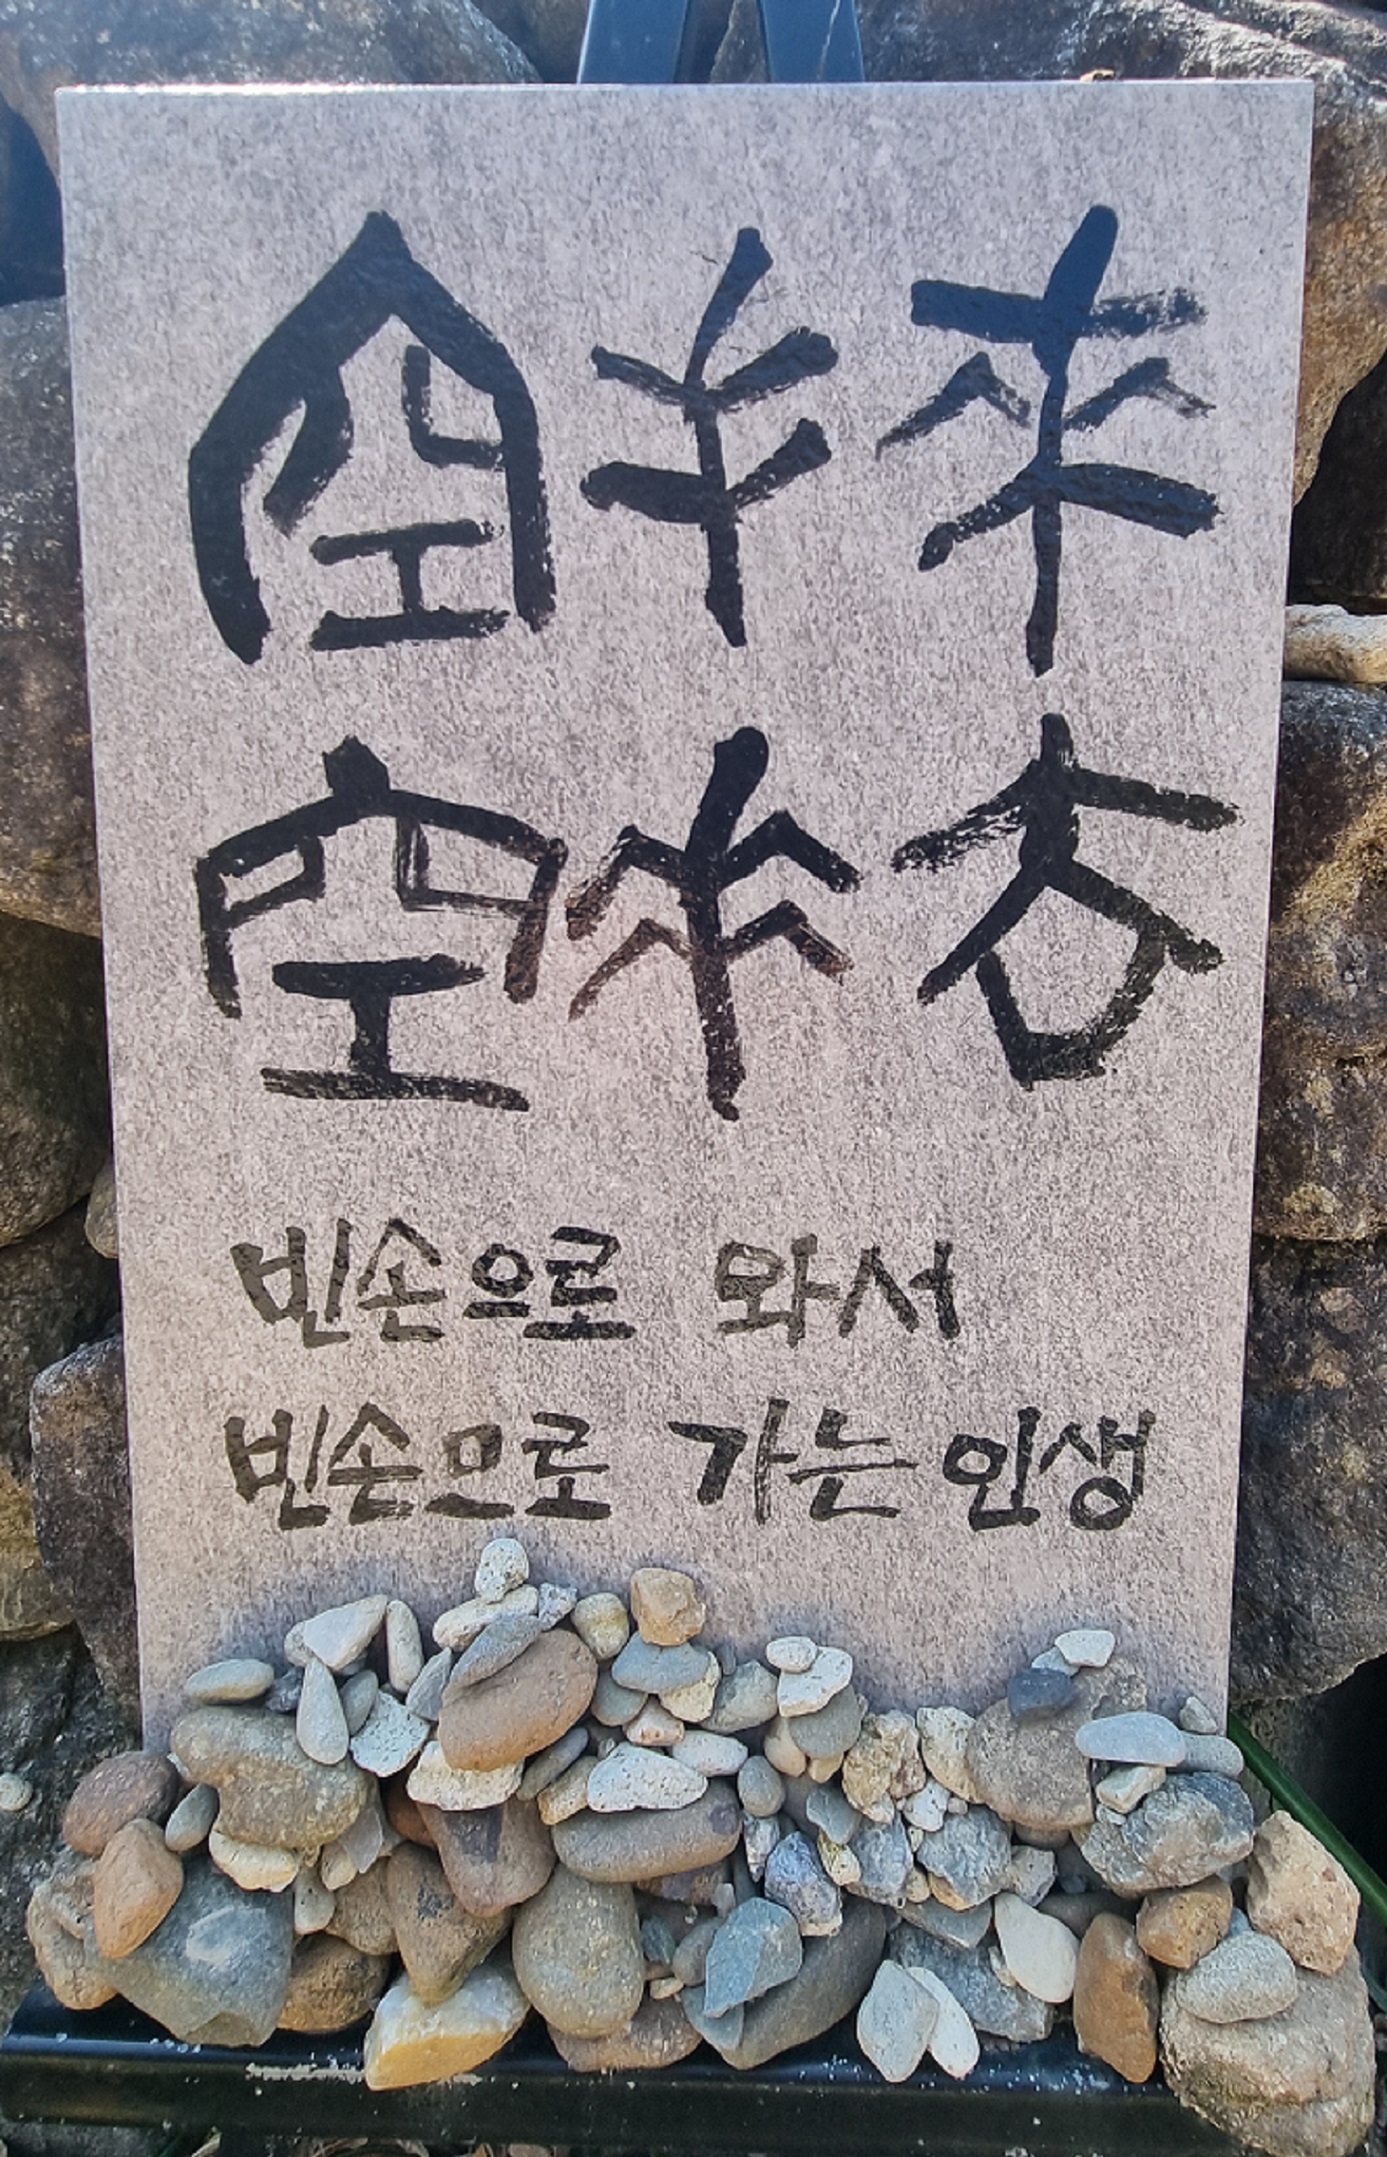 空手來
空手去
빈손으로 와서
빈손으로 가는 인생